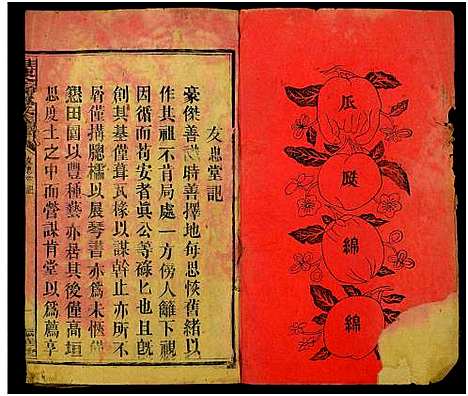 瓜
瓞
綿
綿
友忠堂記
豪傑善識時善擇地每思恢舊緒以
作其祖不肯局處一方傍人籬下視
因循而苟安者眞公等碌匕也且旣
創其基僅葺瓦椽以謀幹止亦所不
屑僅搆牕櫺以展琴書亦爲未愜僅
懇田園以豐種藝亦居其後僅高垣
思度土之中而營謀肯堂以爲薦享